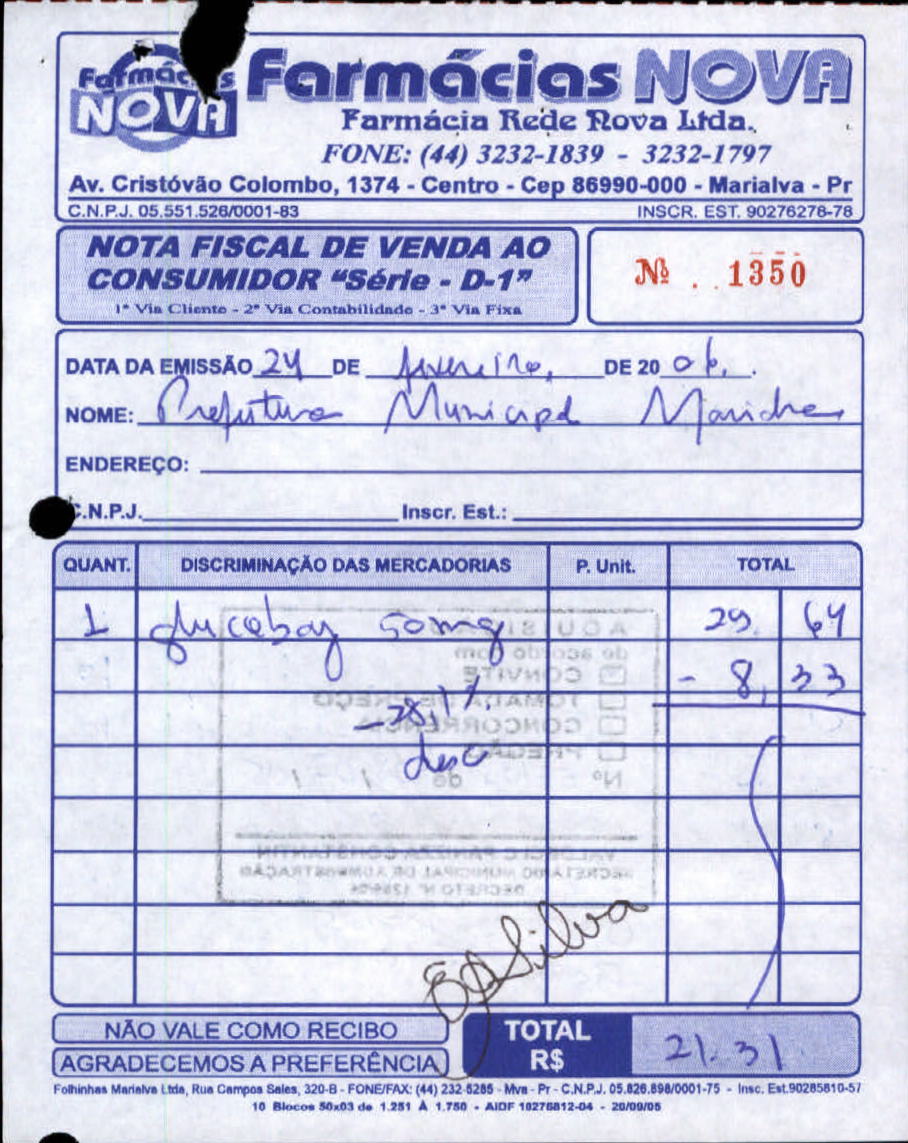 Farmácias NOVA
Farmácias NOVA
Farmácia Rede Nova Ltda.
FONE: (44) 3232-1839 - 3232-1797
Av. Cristóvão Colombo, 1374 - Centro - Cep 86990-000 - Marialva - Pr
C.N.P.J. 05.551.526/0001-83 INSCR. EST. 90276278-78
NOTA FISCAL DE VENDA AO
CONSUMIDOR "Série - D-1"
1ª Via Cliente - 2ª Via Contabilidade - 3ª Via Fixa
Nº . . 1350
DATA DA EMISSÃO 24 DE fevereiro, DE 20 06.
NOME: Prefeitura Municipal
ENDEREÇO:
C.N.P.J. Inscr. Est.:
QUANT. DISCRIMINAÇÃO DAS MERCADORIAS P. Unit. TOTAL
1 glucobay 50mg 29,64
- 8,33
desc
AQUISI
de acordo com
CONVITE
TOMADA DE PREÇO
CONCORRÊNCIA
PREGÃO
Nº de / /
CONSTANTIN
SECRETARIO MUNICIPAL DE ADMINISTRAÇÃO
DECRETO Nº
Silva
NÃO VALE COMO RECIBO
AGRADECEMOS A PREFERÊNCIA
TOTAL
R$ 21.31
Folhinhas Marialva Ltda, Rua Campos Sales, 320-B - FONE/FAX: (44) 232-5285 - Mva - Pr - C.N.P.J. 05.826.898/0001-75 - Insc. Est.90285810-57
10 Blocos 50x03 de 1.251 À 1.750 - AIDF 10276812-04 - 20/09/05